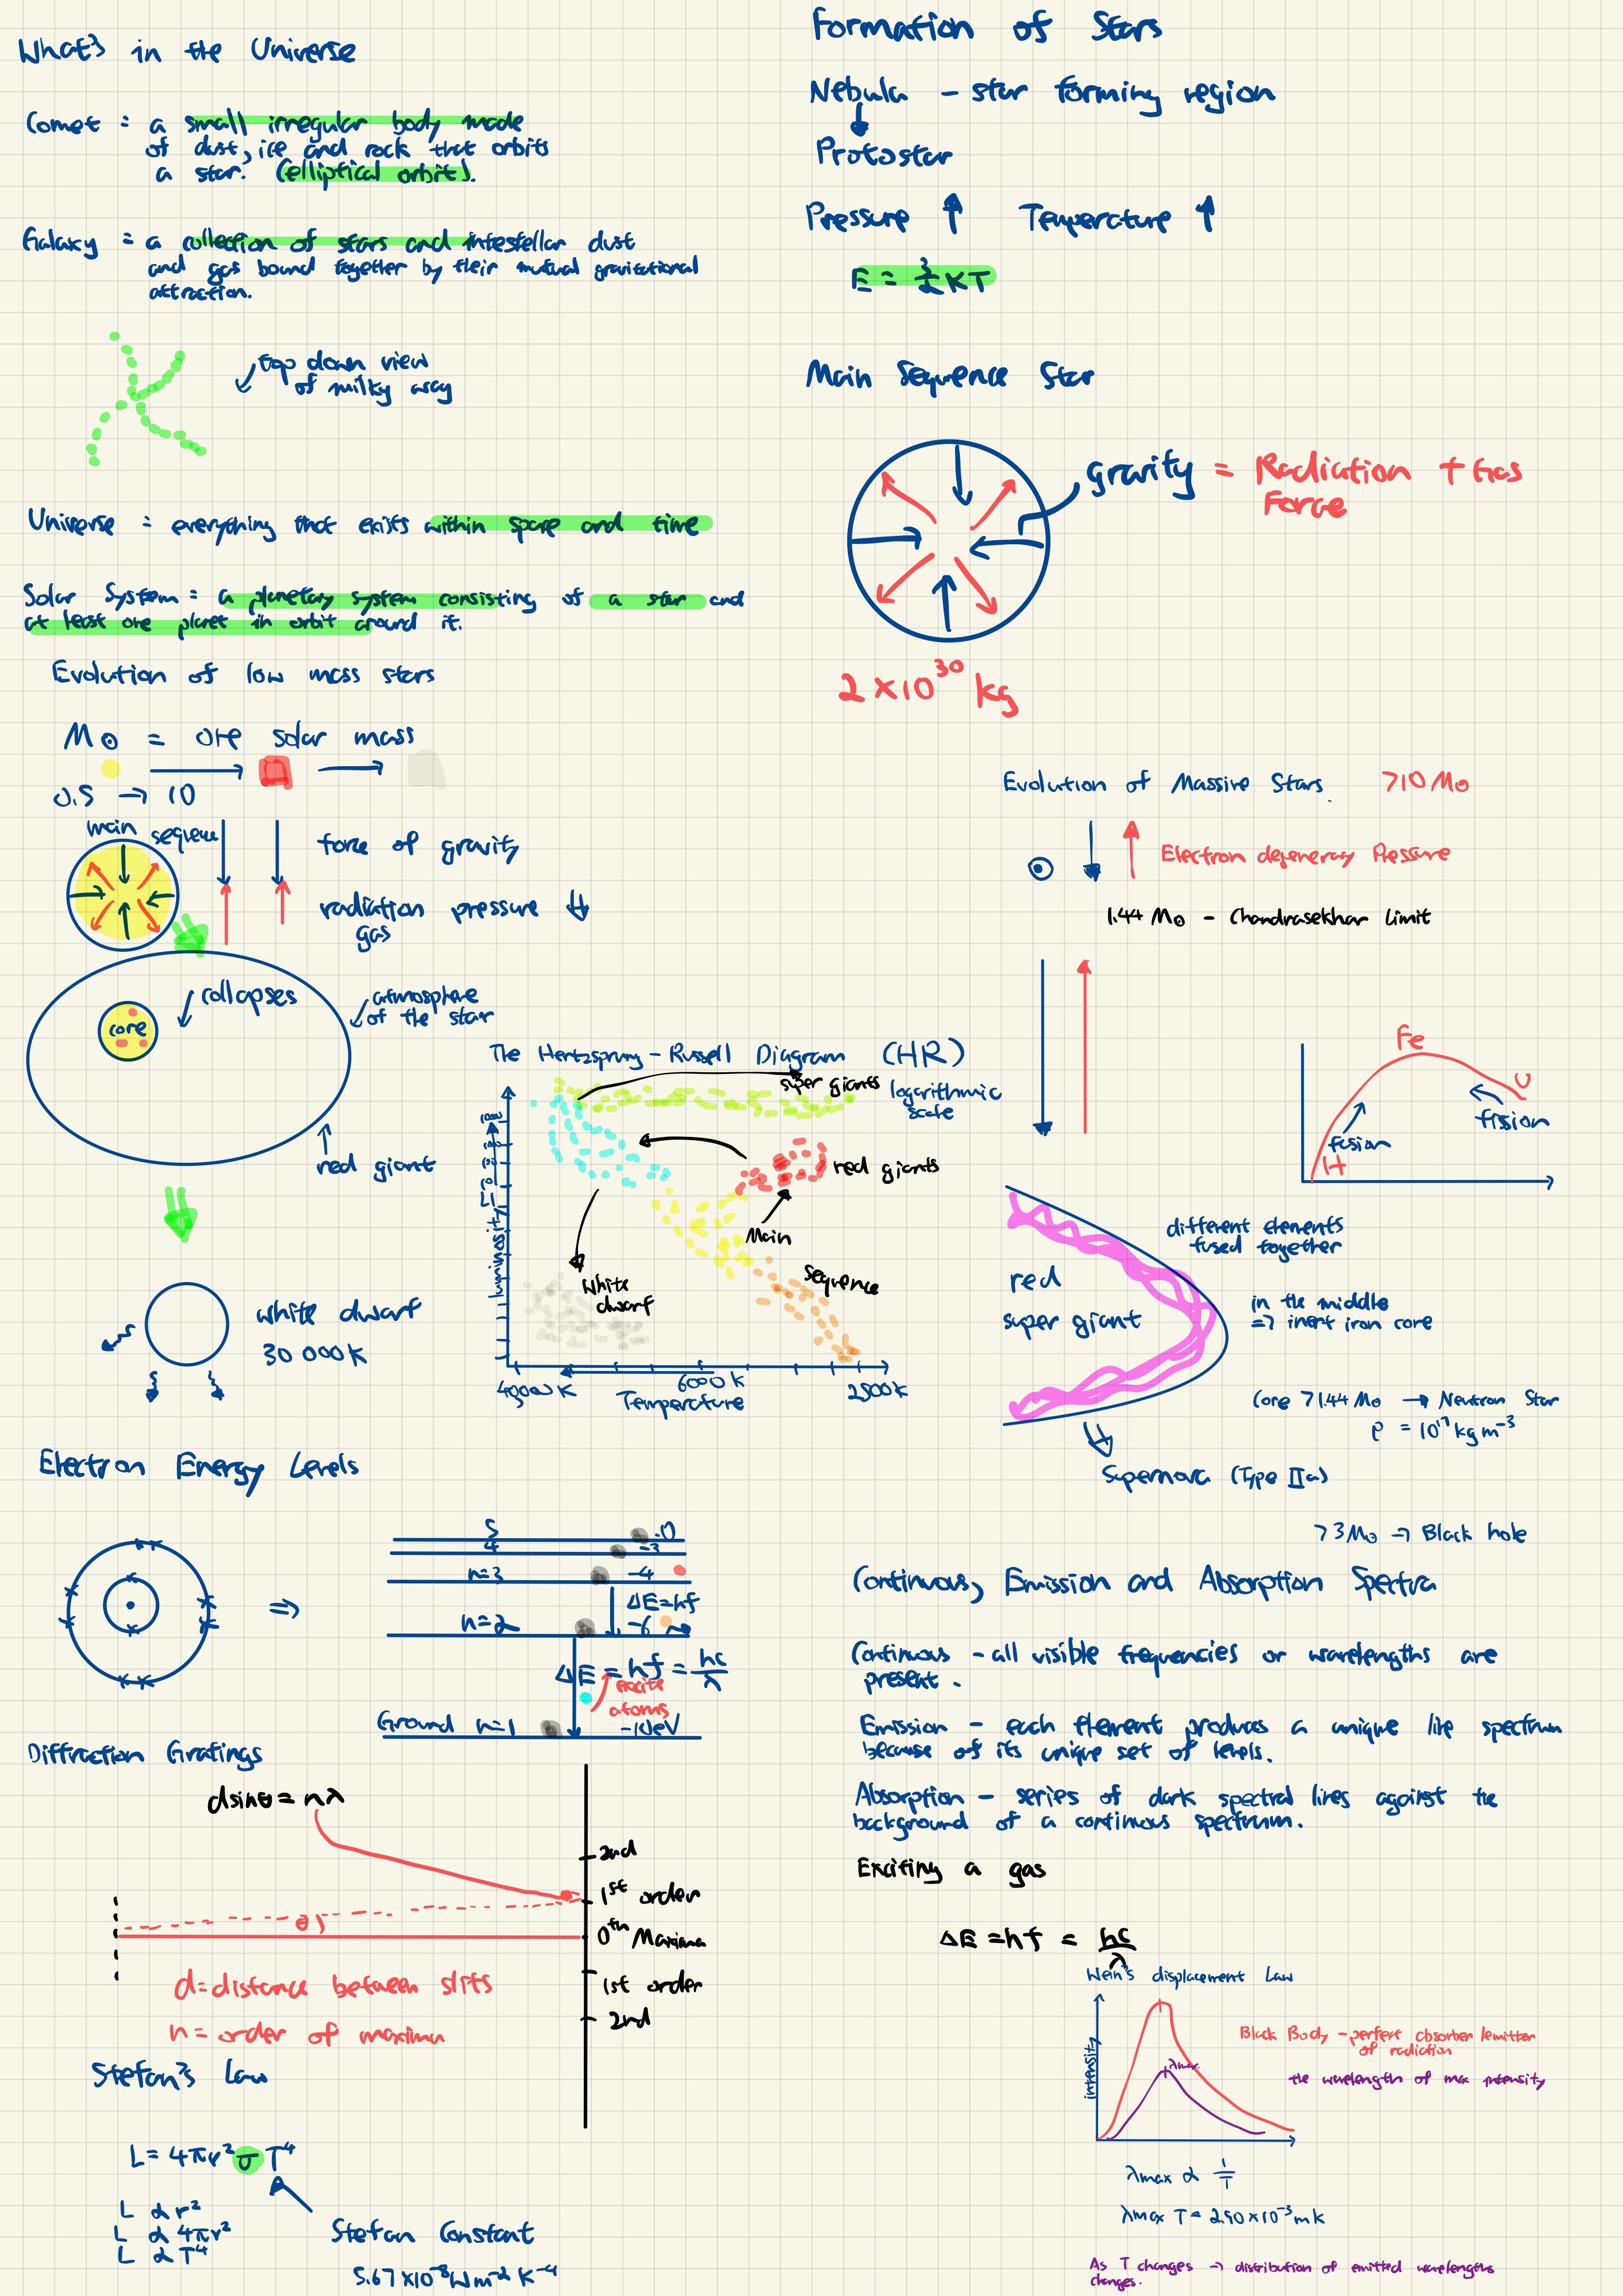 What's in the Universe
Comet = a small irregular body made
of dust, ice and rock that orbits
a star. (elliptical orbit).
Galaxy = a collection of stars and intestellar dust
and gas bound together by their mutual gravitational
attraction.
top down view
of milky way
Universe = everything that exists within space and time
Solar System = a planetary system consisting of a star and
at least one planet in orbit around it.
Formation of Stars
Nebula - star forming region
Protostar
Pressure ↑ Temperature ↑
E = 3/2 KT
Main Sequence Star
gravity = Radiation + Gas
Force
2 × 10³⁰ kg
Evolution of low mass stars
M⊙ = one solar mass
0.5 → 10
main sequence
force of gravity
radiation pressure ↓
gas
core
collapses
atmosphere
of the star
red giant
white dwarf
30 000K
The Hertzsprung - Russell Diagram (HR)
logarithmic
scale
super giants
red giants
Main
Sequence
White
dwarf
luminosity
40000K
6000K
2500K
Temperature
Evolution of Massive Stars. >10 M⊙
Electron degeneracy Pressure
1.44 M⊙ - Chandrasekhar Limit
Fe
U
H
fusion
fission
different elements
fused together
red
super giant
in the middle
=> inert iron core
Core >1.44 M⊙ → Neutron Star
ρ = 10¹⁷ kg m⁻³
Supernova (Type IIa)
>3 M⊙ → Black hole
Electron Energy Levels
5
4 -3
n=3 -4
ΔE=hf
n=2 -6
ΔE = hf = hc/λ
excite
atoms
Ground n=1 -10eV
Diffraction Gratings
dsinθ = nλ
2nd
1st order
θ
0th Maxima
1st order
2nd
d=distance between slits
n= order of maxima
Stefan's Law
L = 4πr²σT⁴
L ∝ r²
L ∝ 4πr²
L ∝ T⁴
Stefan Constant
5.67 ×10⁻⁸ W m⁻² K⁻⁴
Continuous, Emission and Absorption Spectra
Continuous - all visible frequencies or wavelengths are
present.
Emission - each element produces a unique line spectrum
because of its unique set of levels.
Absorption - series of dark spectral lines against the
background of a continuous spectrum.
Exciting a gas
ΔE = hf = hc/λ
Wein's displacement Law
intensity
λmax
Black Body - perfect absorber /emitter
of radiation
the wavelength of max intensity
λmax ∝ 1/T
λmax T = 2.90 × 10⁻³ mK
As T changes → distribution of emitted wavelengths
changes.